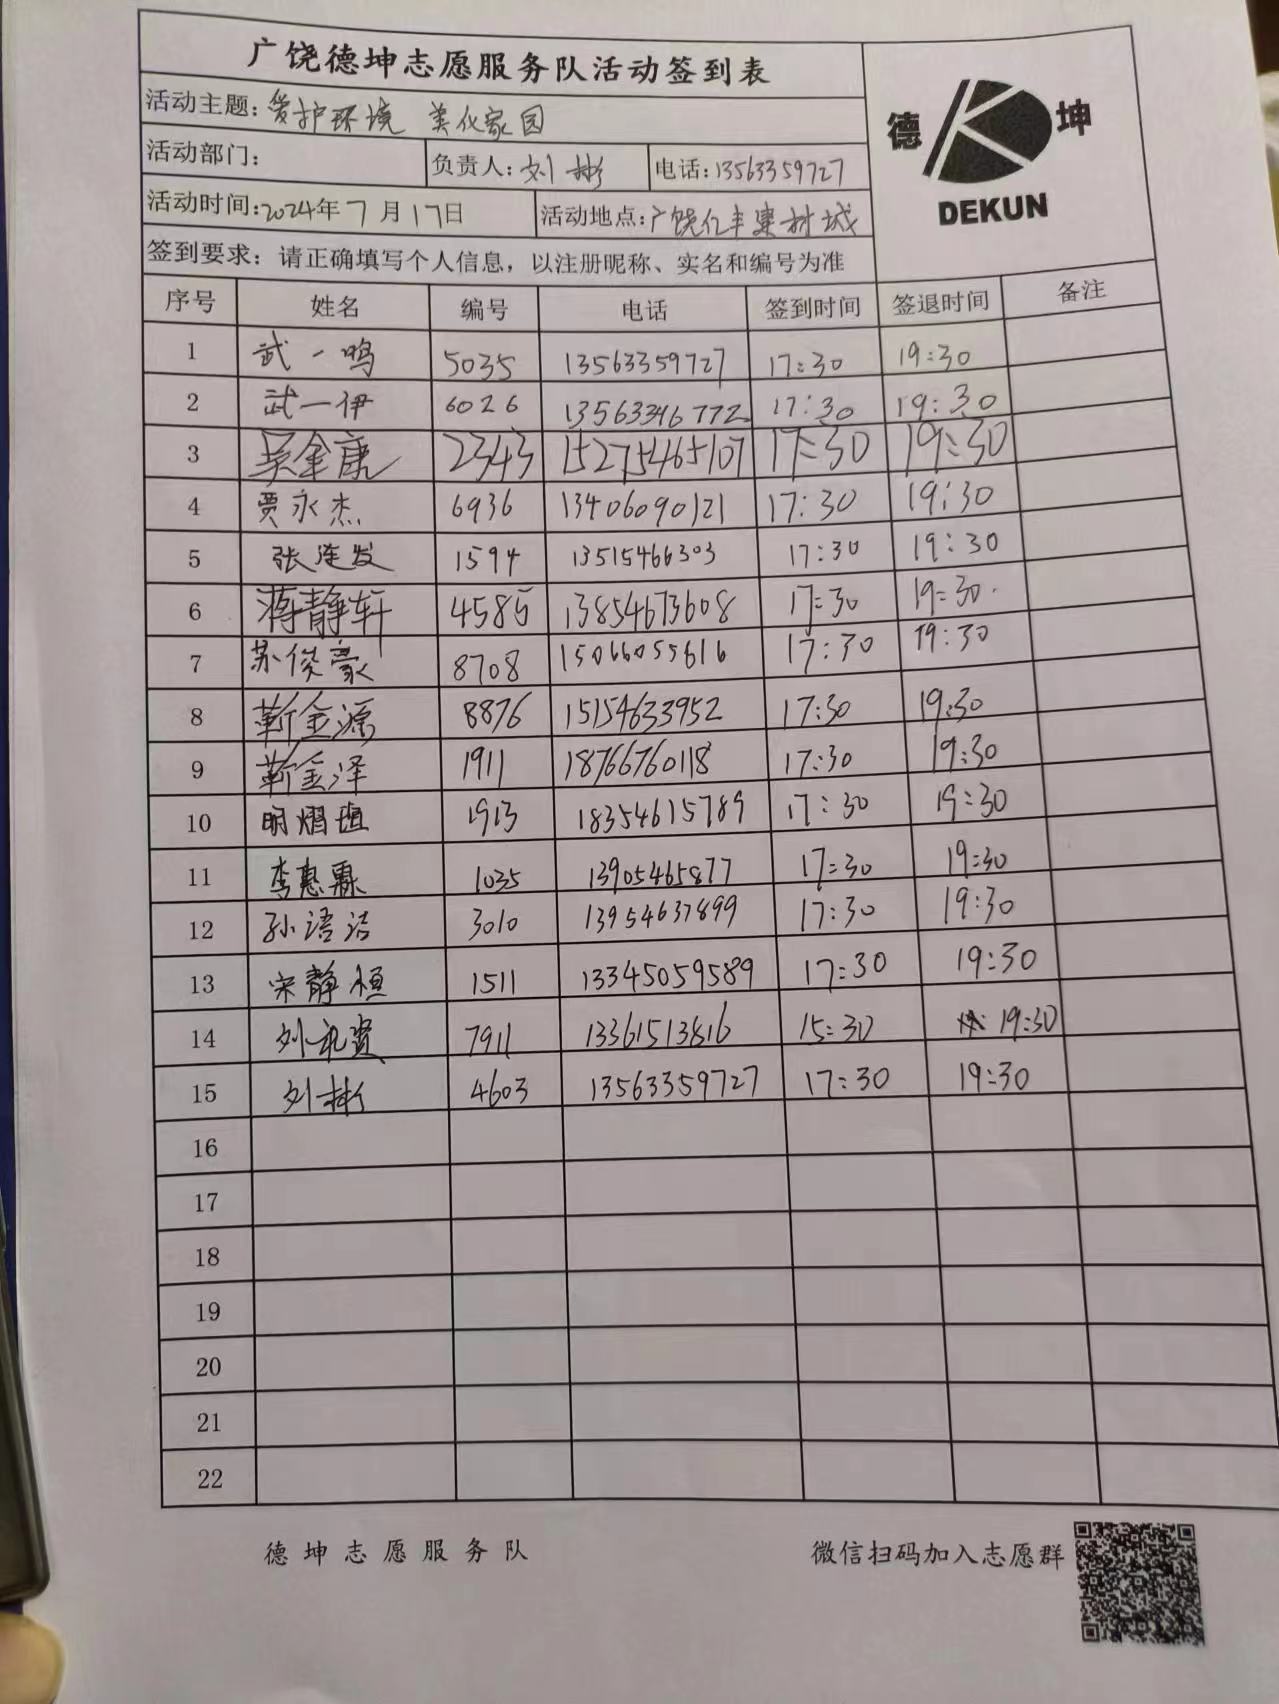 广饶德坤志愿服务队活动签到表
德 坤
DEKUN
活动主题：爱护环境 美化家园
活动部门： 负责人：刘彬 电话：13563359727
活动时间：2024年7月17日 活动地点：广饶亿丰建材城
签到要求：请正确填写个人信息，以注册昵称、实名和编号为准
序号 姓名 编号 电话 签到时间 签退时间 备注
1 武一鸣 5035 13563359727 17:30 19:30
2 武一伊 6026 13563346772 17:30 19:30
3 吴金康 2343 15275465107 17:30 19:30
4 贾永杰 6936 13406090121 17:30 19:30
5 张连发 1594 13515466303 17:30 19:30
6 蒋静轩 4585 13854673608 17:30 19:30
7 苏俊豪 8708 15066055616 17:30 19:30
8 靳金源 8876 15154633952 17:30 19:30
9 靳金泽 1911 18766760118 17:30 19:30
10 明熠垣 1913 18354615789 17:30 19:30
11 李惠霖 1035 13905465877 17:30 19:30
12 孙语洁 3010 13954637899 17:30 19:30
13 宋静恒 1511 13345059589 17:30 19:30
14 刘礼贤 7911 13361513816 15:30 19:30
15 刘彬 4603 13563359727 17:30 19:30
16
17
18
19
20
21
22
德坤志愿服务队 微信扫码加入志愿群